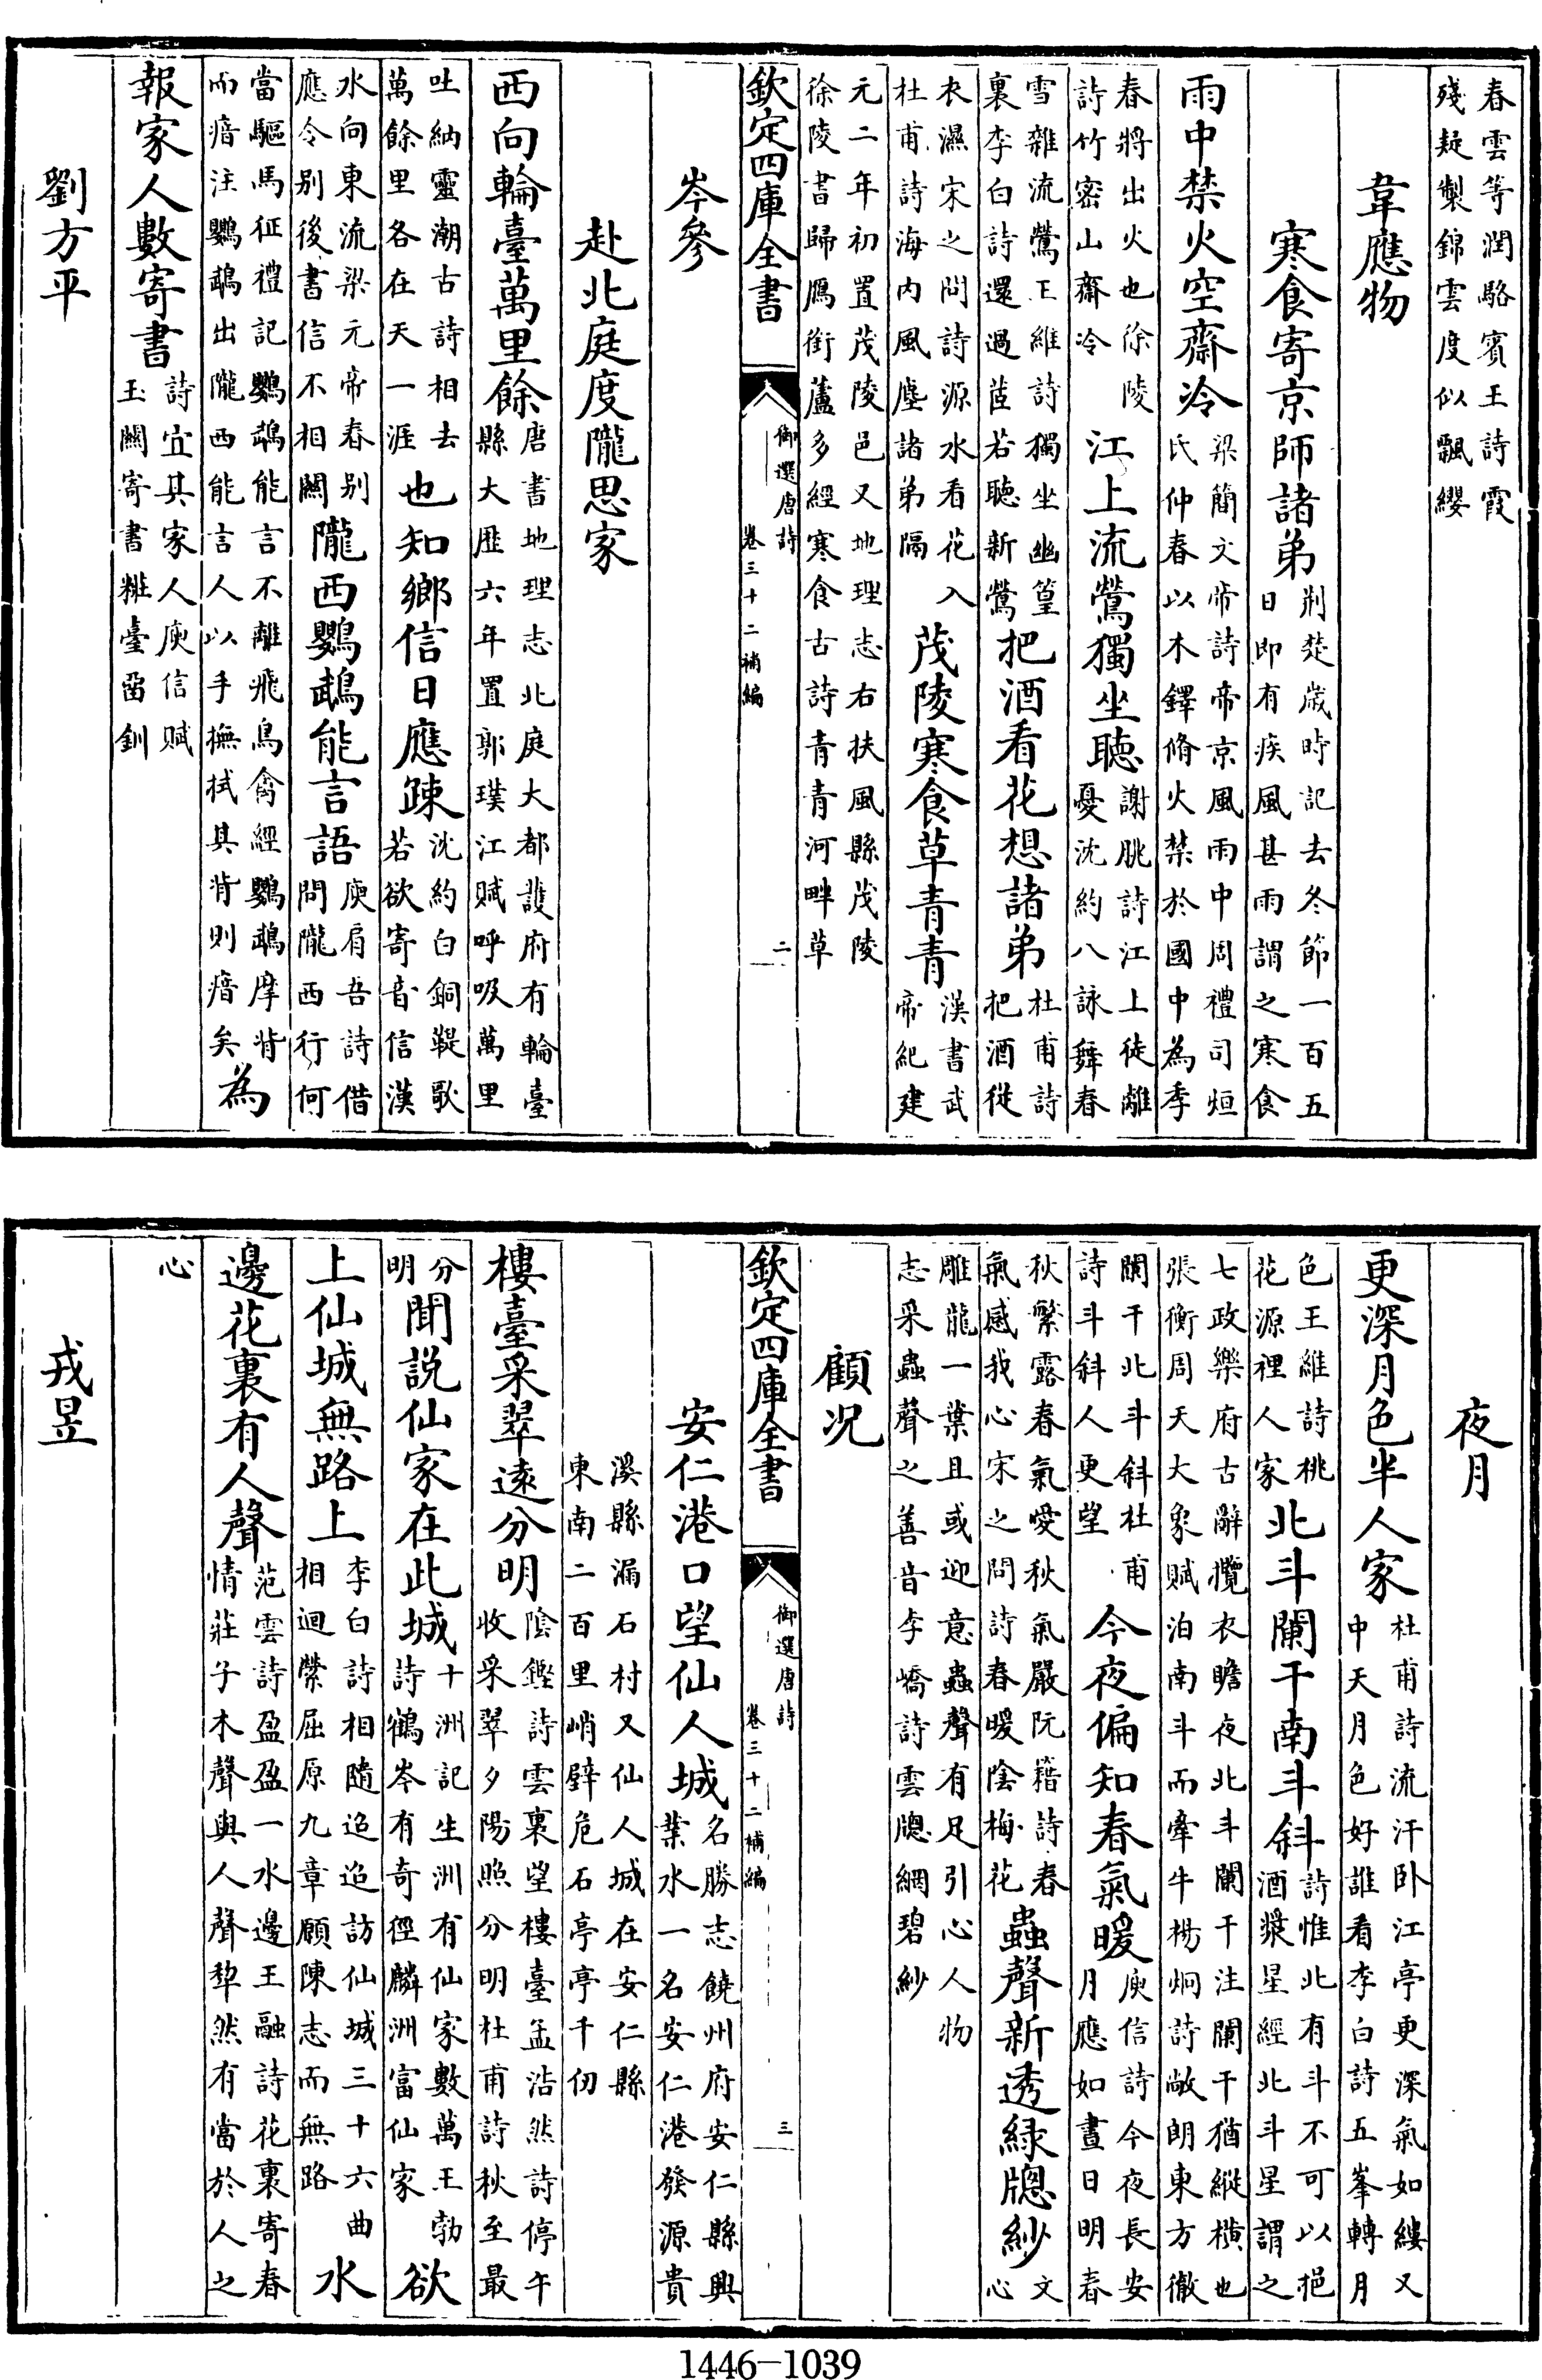 春雲等潤駱賓王詩霞殘疑製錦雲度似飄纓
韋應物
寒食寄京師諸弟荆楚歲時記去冬節一百五日即有疾風甚雨謂之寒食
雨中禁火空齋冷梁簡文帝詩帝京風雨中周禮司烜氏仲春以木鐸脩火禁於國中為季
春將出火也徐陵詩竹密山齋冷江上流鶯獨坐聽謝朓詩江上徒離憂沈約八詠舞春
雪雜流鶯王維詩獨坐幽篁裏李白詩還過茝若聽新鶯把酒看花想諸弟杜甫詩把酒從
衣濕宋之問詩源水看花入杜甫詩海内風塵諸弟隔茂陵寒食草青青漢書武帝紀建
元二年初置茂陵邑又地理志右扶風縣茂陵徐陵書歸鴈銜蘆多經寒食古詩青青河畔草
欽定四庫全書 御選唐詩 卷三十二補編 二
岑參
赴北庭度隴思家
西向輪臺萬里餘唐書地理志北庭大都護府有輪臺縣大歷六年置郭璞江賦呼吸萬里
吐納靈潮古詩相去萬餘里各在天一涯也知鄉信日應疎沈約白銅鞮歌若欲寄音信漢
水向東流梁元帝春别應令别後書信不相關隴西鸚鵡能言語庾肩吾詩借問隴西行何
當驅馬征禮記鸚鵡能言不離飛鳥禽經鸚鵡摩背而瘖注鸚鵡出隴西能言人以手撫拭其背則瘖矣為
報家人數寄書詩宜其家人庾信賦玉關寄書粧臺留釧
劉方平
夜月
更深月色半人家杜甫詩流汗卧江亭更深氣如縷又中天月色好誰看李白詩五峯轉月
色王維詩桃花源裡人家北斗闌干南斗斜詩惟北有斗不可以挹酒漿星經北斗星謂之
七政樂府古辭攬衣瞻夜北斗闌干注闌干猶縱橫也張衡周天大象賦泊南斗而牽牛楊炯詩敞朗東方徹
闌干北斗斜杜甫詩斗斜人更望今夜偏知春氣暖庾信詩今夜長安月應如晝日明春
秋繁露春氣愛秋氣嚴阮籍詩春氣感我心宋之問詩春暖陰梅花蟲聲新透緑牕紗文心
雕龍一葉且或迎意蟲聲有足引心人物志采蟲聲之善音李嶠詩雲牕網碧紗
顧况
欽定四庫全書 御選唐詩 卷三十二補編 三
安仁港口望仙人城名勝志饒州府安仁縣興業水一名安仁港發源貴
溪縣漏石村又仙人城在安仁縣東南二百里峭壁危石亭亭千仞
樓臺采翠遠分明陰鏗詩雲裏望樓臺孟浩然詩停午收采翠夕陽照分明杜甫詩秋至最
分明聞説仙家在此城十洲記生洲有仙家數萬王勃詩鶴岑有奇徑麟洲富仙家欲
上仙城無路上李白詩相隨迢迢訪仙城三十六曲相迴縈屈原九章願陳志而無路水
邊花裏有人聲范雲詩盈盈一水邊王融詩花裏寄春情莊子木聲與人聲犂然有當於人之
心
戎昱
1446-1039